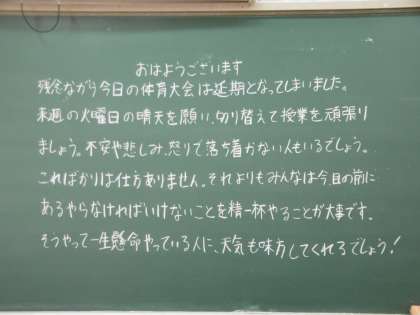 おはようございます
残念ながら今日の体育大会は延期となってしまいました。
来週の火曜日の晴天を願い、切り替えて授業を頑張り
ましょう。不安や悲しみ、怒りで落ち着かない人もいるでしょう。
こればかりは仕方ありません。それよりもみんなは今、目の前に
あるやらなければいけないことを精一杯やることが大事です。
そうやって一生懸命やっている人に、天気も味方してくれるでしょう!